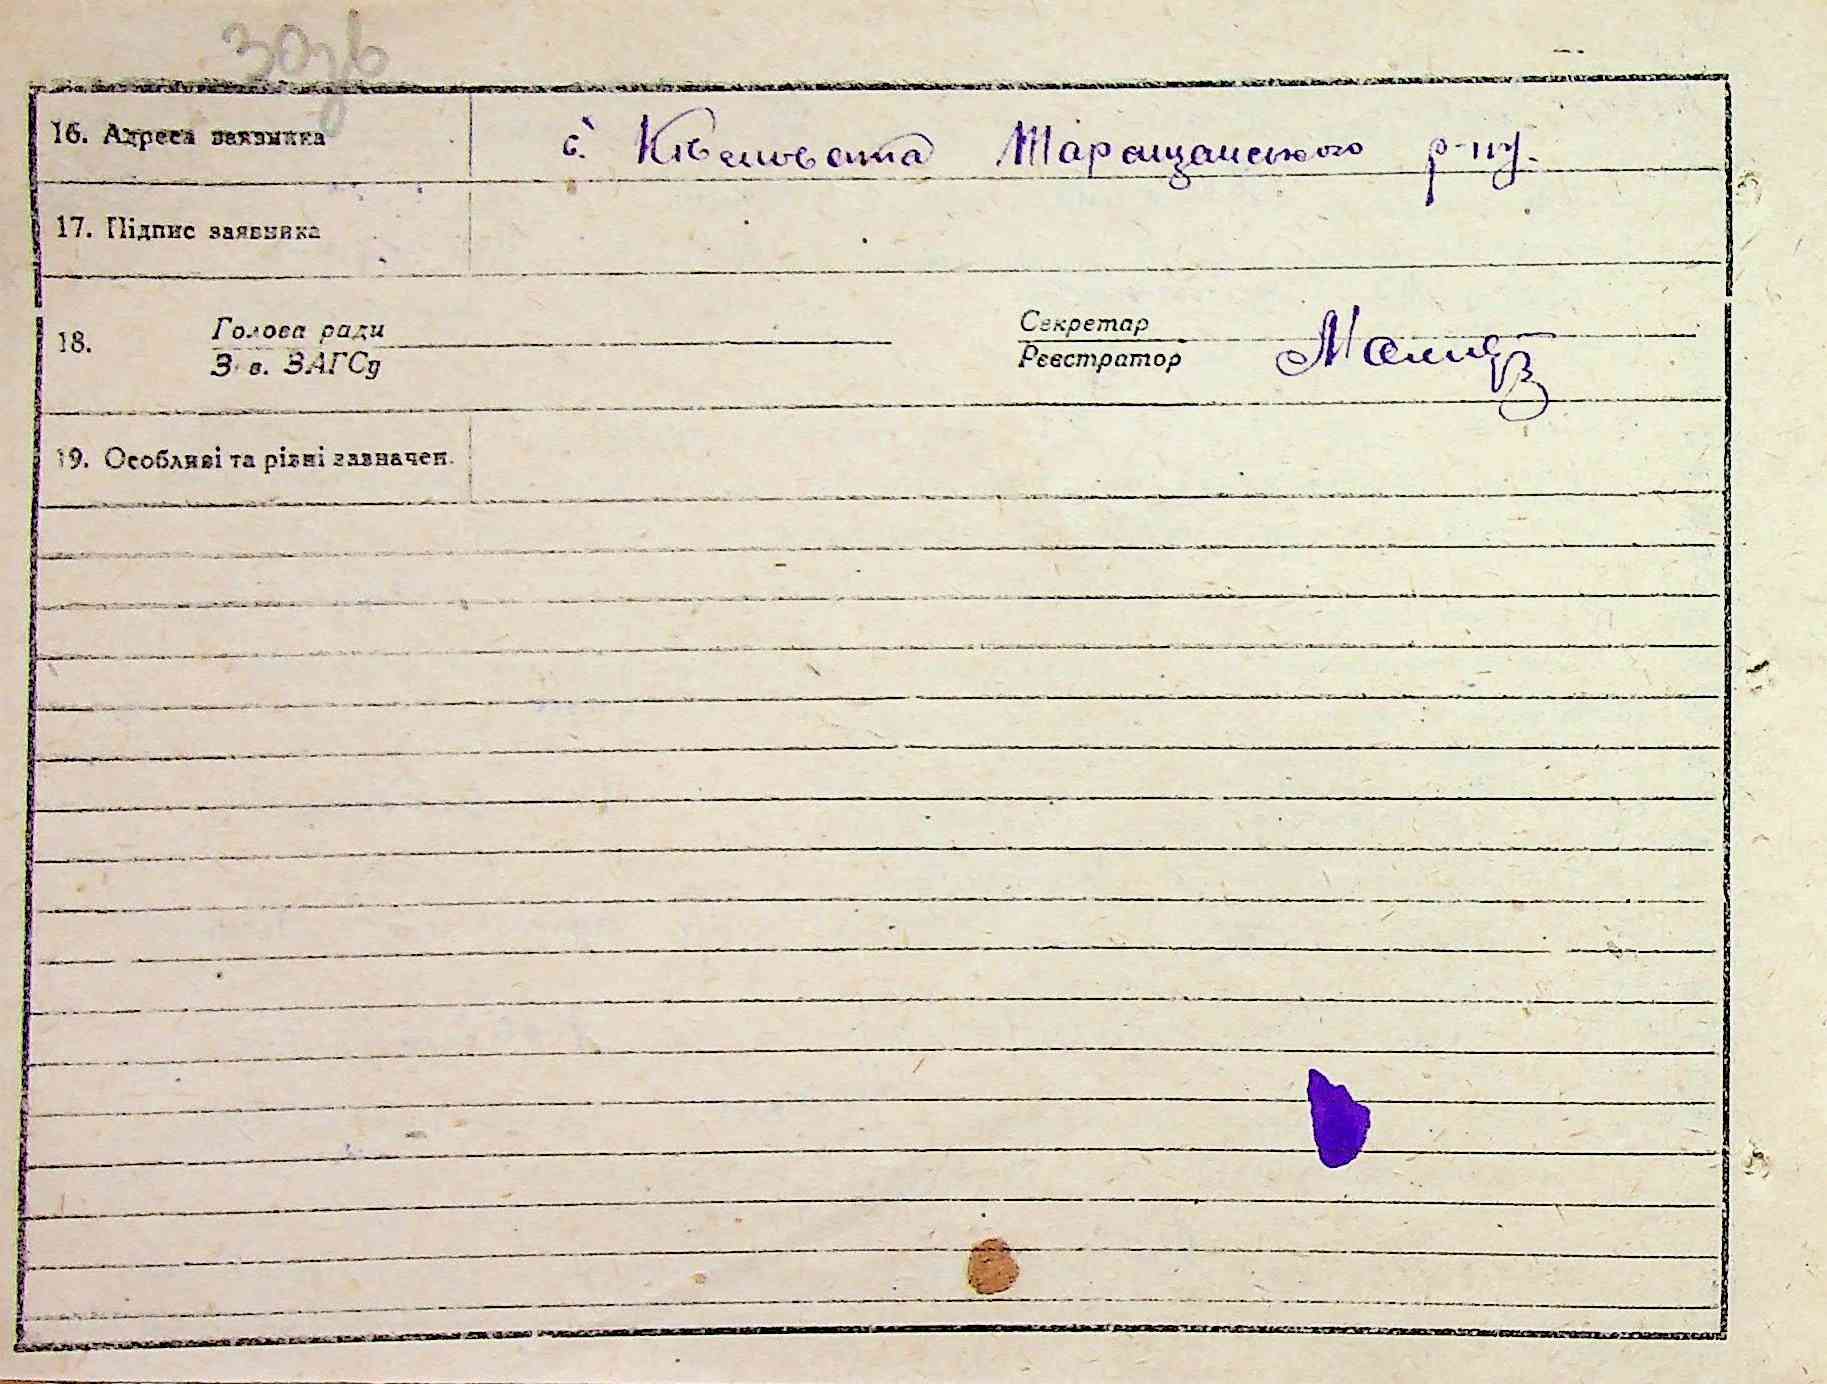 30зв
16. Адреса заявника с. Ківшовата Таращанського р-ну.
17. Підпис заявника
18. Голова ради Секретар
Зав. ЗАГСу Реєстратор
19. Особливі та різні зазначен.